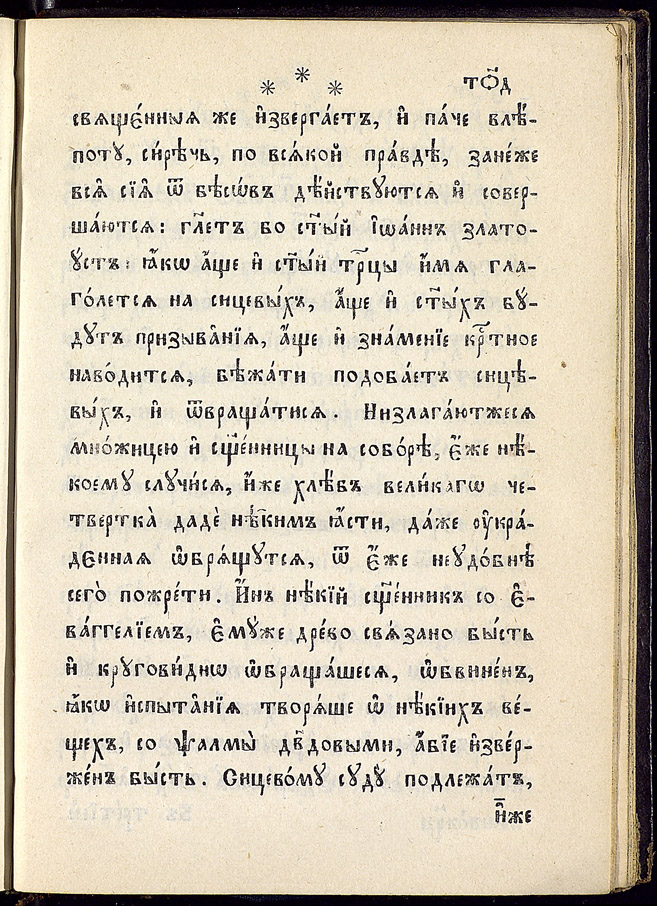 * * *
то҃д
свѧще́нныѧ же и҆зверга́етъ, и҆ па́че влѣ́-
потꙋ, си́рѣчь, по всѧ́кой пра́вдѣ, зане́же
всѧ̑ сїѧ̑ ѿ бѣсѡ́въ дѣ́йствꙋютсѧ и҆ совер-
ша́ютсѧ: гл҃етъ бо ст҃ы́й і҆ѡа́ннъ злато-
ꙋстъ: ꙗ҆́кѡ а҆́ще и҆ ст҃ы́ѧ тр҃цы и҆́мѧ гла-
го́летсѧ на сицевы́хъ, а҆́ще и҆ ст҃ы́хъ бꙋ-
дꙋтъ призыва̑нїѧ, а҆́ще и҆ зна́менїе крⷭ҇тное
наво́дитсѧ, бѣжа́ти подоба́етъ сицѣ-
вы́хъ, и҆ ѿвраща́тисѧ. Низлага́ютжесѧ
мно́жицею и҆ сщ҃е́нницы на собо́рѣ, є҆́же нѣ́-
коемꙋ слꙋчи́сѧ, и҆́же хлѣ́въ вели́кагѡ че-
твертка̀ дадѐ нѣ̑кимъ ꙗ҆́сти, да́же ᲂу҆кра́-
денная ѡ҆брѧ́щꙋтсѧ, ѿ є҆́же неꙋдо́бнѣ
сего̀ пожре́ти. И҆́нъ нѣ́кїй сщ҃е́нникъ со є҆-
ва́ггелїемъ, є҆мꙋ́же дре́во свѧ́зано бы́сть
и҆ крꙋгови́днѡ ѡ҆браща́шесѧ, ѡ҆бвине́нъ,
ꙗ҆́кѡ и҆спыта̑нїѧ творѧ́ше ѡ҆ нѣ́кїихъ ве́-
щехъ, со ѱалмы̀ дв҃довыми, а҆́бїе и҆зве́р-
же́нъ бы́сть. Сицево́мꙋ сꙋдꙋ̀ подлежа́тъ,
и҆̀же